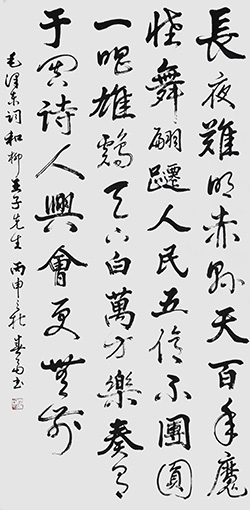 長夜難明赤縣天百年魔
怪舞翩躚人民五億不團圓
一唱雄鷄天下白萬方樂奏有
于闐詩人興會更無前
毛澤東詞和柳亞子先生 丙申之秋